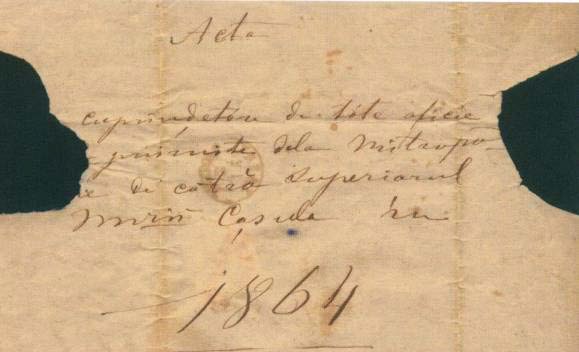 Acta
cuprindetóre de tóte oficie
primite dela Mitropo
de cătră Superiorul
Cașula în
1864